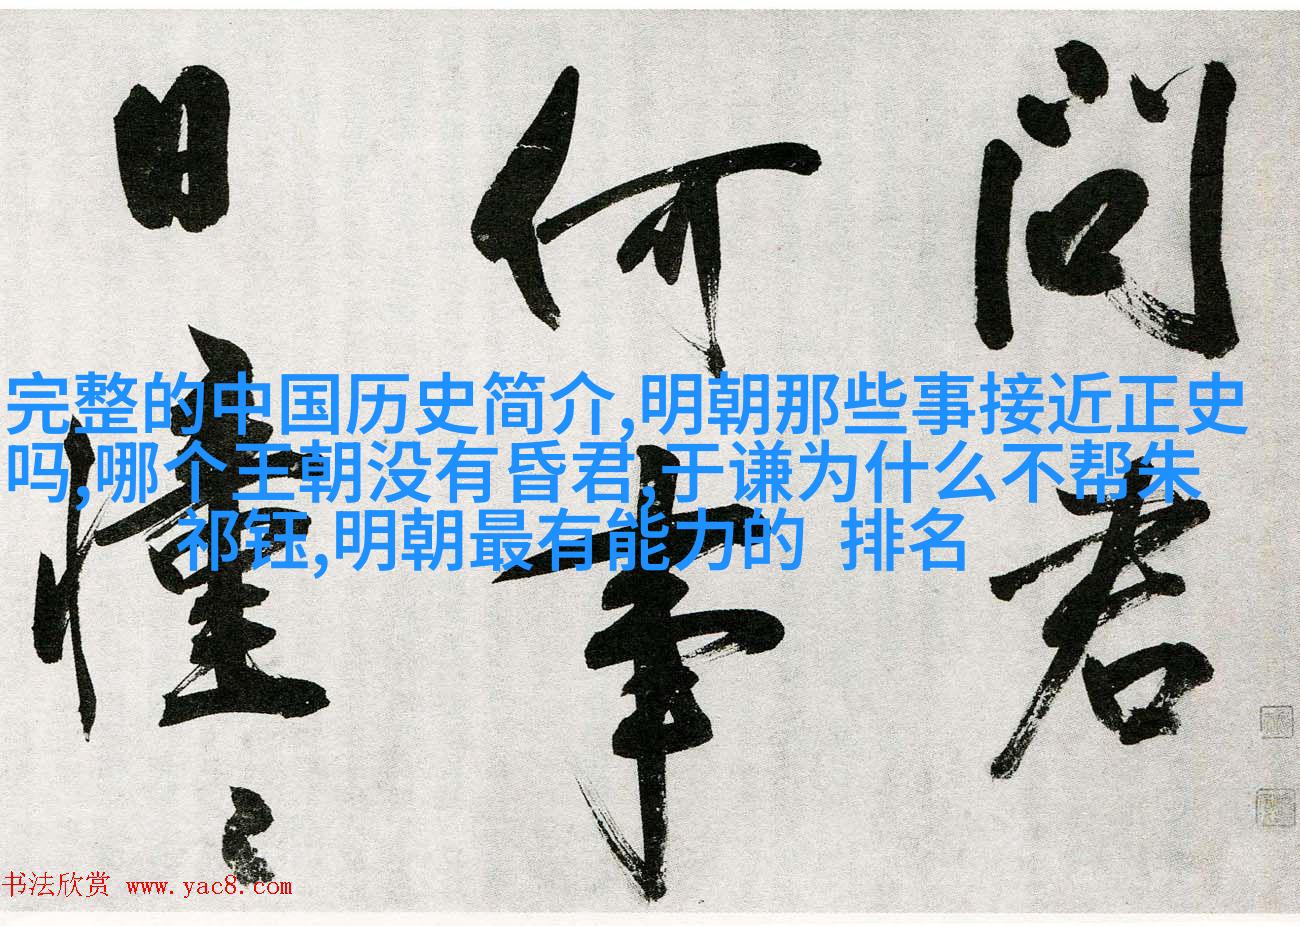 問君
何事
日憧々
完整的中国历史简介,明朝那些事接近正史
吗,哪个王朝没有昏君,于谦为什么不帮朱
祁钰,明朝最有能力的 排名
书法欣赏 www.yac8.com